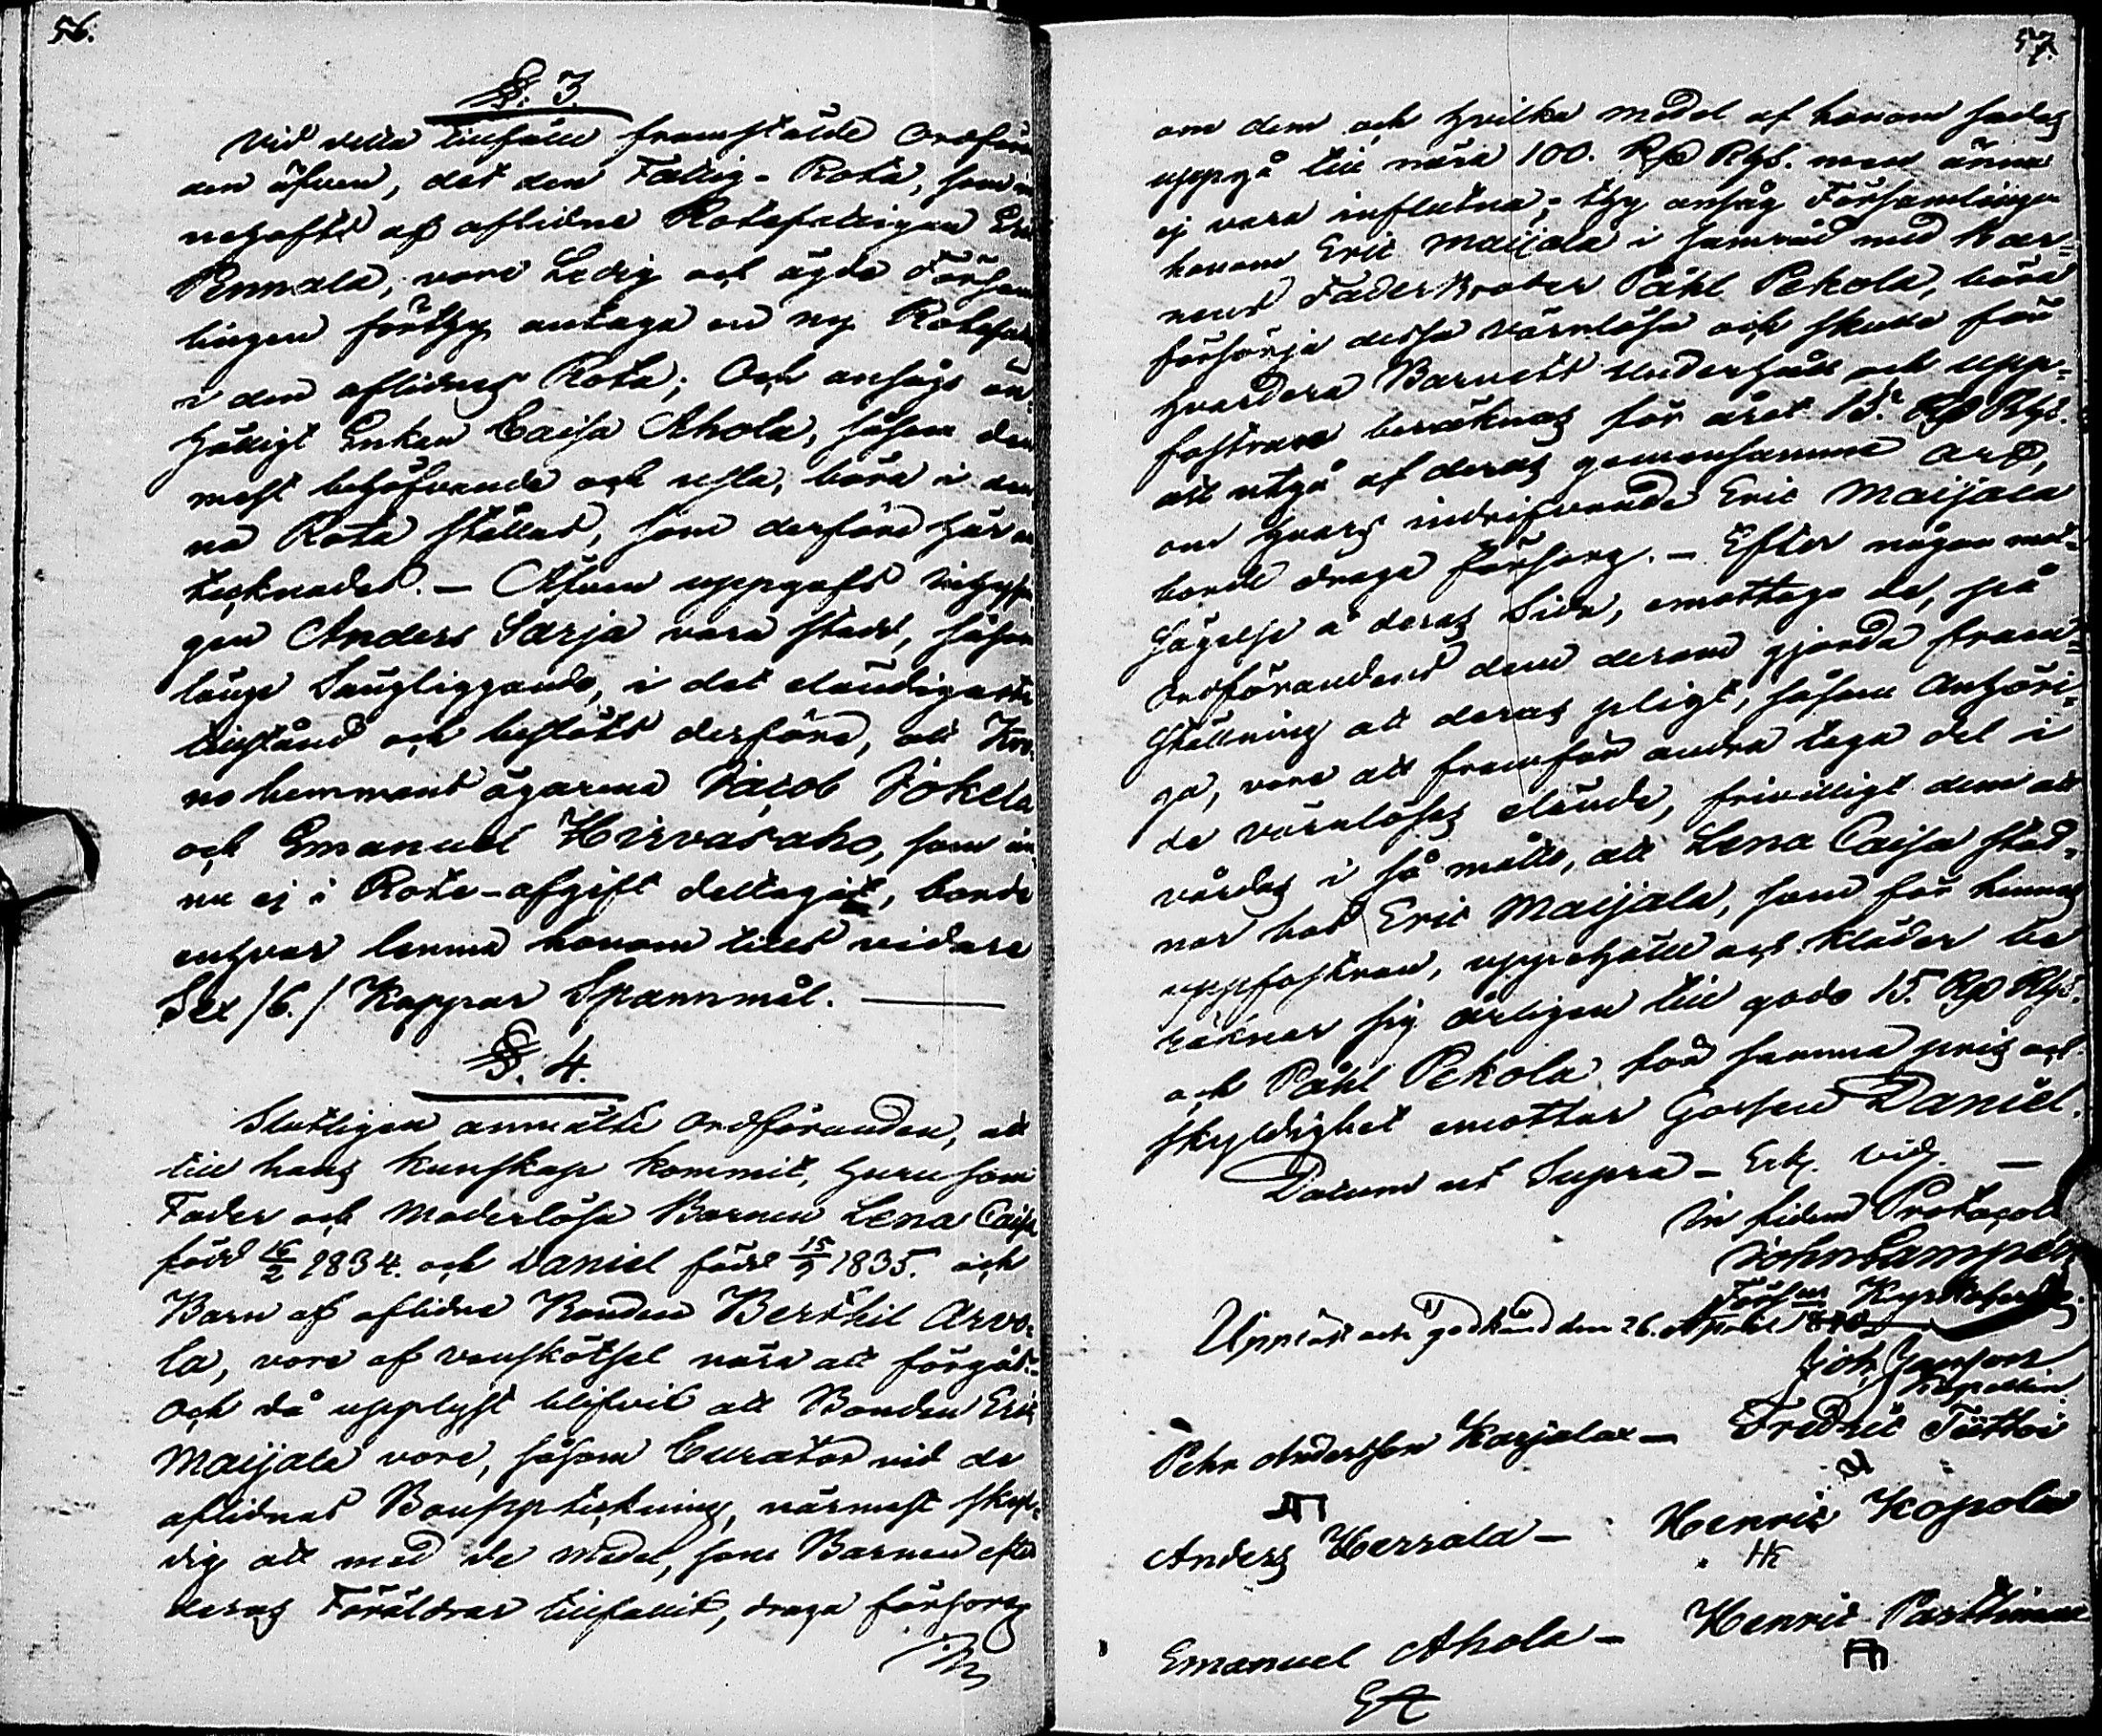 56.
§. 3.
Vid detta tillfälle framstälde Ordföran
den äfven, det den Fattig-Rota, som in
nehafts af aflidne Rotefattigen
Pennala, vore Ledig och ägde Försam
lingen förthy antaga en ny Rotefatt
i den aflidnes Rota; Och ansågs en
hälligt Enkan Caisa Ahola, såsom den
mest behöfvande och usla, böra i den
na Rota ställas, som derföre här an
tecknades. — Äfven uppgafs
gen Anders Sarja vara stadd, såsom
länge Sängliggande, i det eländigaste
tillstånd och beslöts derföre, att Kro
no hemmans ägarena Jacob Jokela
och Emanuel Hirvasaho, som än
nu ej i Rote-afgift deltagit, borde
enhvar lemna honom tills vidare
Sex /6./ Kappar Spannmål. —
§. 4.
Slutligen anmälte Ordföranden, att
till hans kunskap kommit, huru som
Fader och Moderlösa Barnen Lena Caisa
född 16/2 1834. och Daniel född 15/9 1835. och
Barn af aflidne Bonden Berthil Arvo-
la, vore af vanskötsel nära att förgås:
Och då upplyst blifvit att Bonden Eric
Maijala vore, såsom Curator vid de
aflidnas Bouppteckning, närmast skyl-
dig att med de medel, som Barnen efter
deras Föräldrar tillfallit, draga försorg
57.
om dem och hvilka medel af honom sades
uppgå till nära 100. Rub Rgs. men ännu
ej vara influtna; thy ansåg Församlingen
honom Eric Maijala i samråd med Bar-
nens FaderBroder Påhl Pekola, böra
försörja dessa värnlösa och skulle för
hvardera Barnets Underhåll och upp-
fostran beräknas för året 15. Rub Rgs.
att utgå af deras gemensamma Arf,
om hvars indrifvande Eric Maijala
borde draga försorg. — Efter någon mot-
sägelse å deras Sida, emottogo de, på
Ordförandens dem derom gjorda fram-
ställning att deras pligt, såsom Anhöri-
ga, vore att framför andra taga del i
de värnlösas elände, frivilligt dem att
vårdas i så måtto, att Lena Caisa stad-
nar hos Eric Maijala, som för hennes
uppfostran, uppehälle och kläder be
räknar sig årligen till godo 15. Rub Rgs.
och Påhl Pekola för samma pris och
skyldighet emottar Gossen Daniel.
Datum ut Supra — Ech. vidj. —
In fidem Protocolli
John Lampén
Förs:ns Kyrkoherde
Uppläst och godkänd den 26. April 1840.
Joh: Janson
Kapellan
Pehr Andersson Karjalax — Fredric Tiittoi
Anders Herrala — Henric Kopola
HK
Emanuel Ahola — Henric Parttimaa
EA